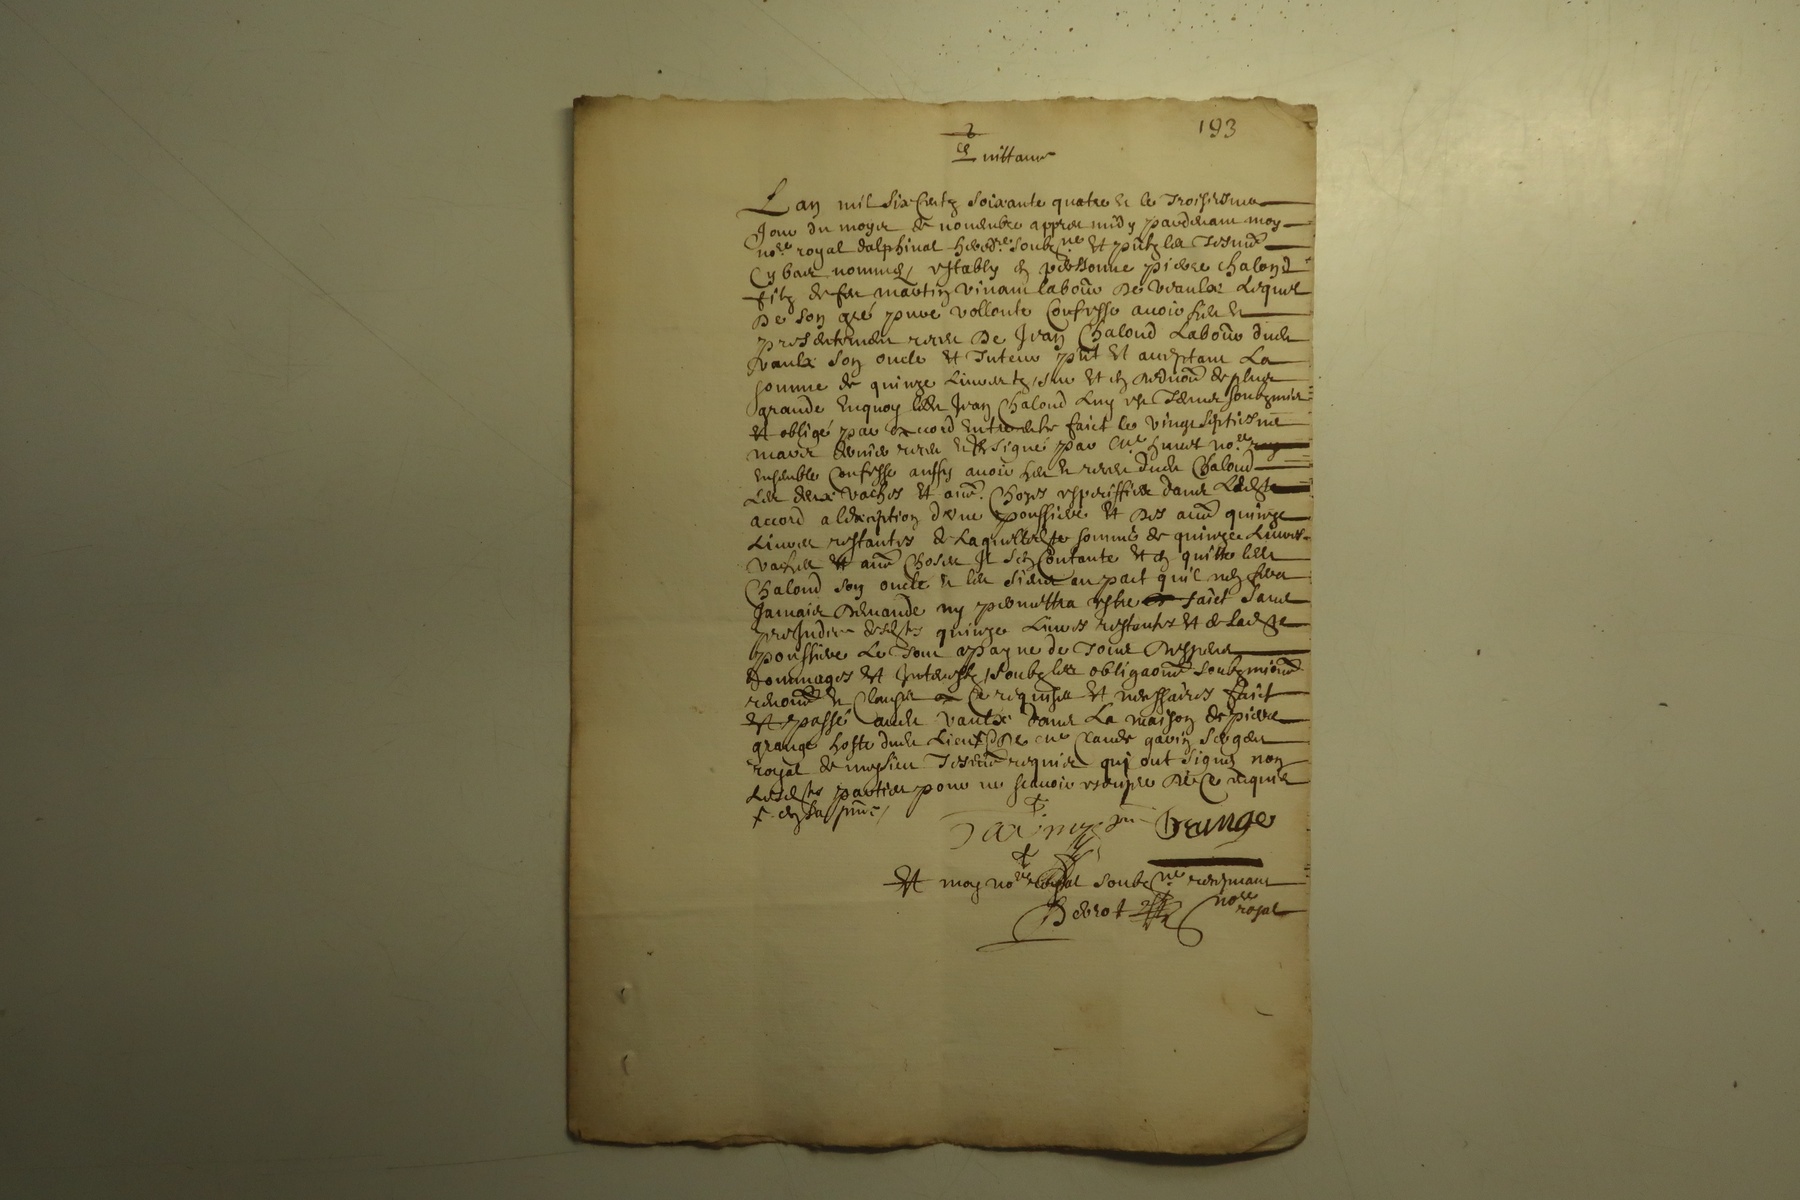 193
Quittance
Lan mil six centz soixante quatre et le troisiesme
Jour du moys de novembre appres midy pardevant moy
no.re royal dalphinal hered.re soubz.ne et pntz les tesm.
Cy bas nommes, estably en personne pierre chalond
filz de feu martin vivant labour de veaulx lequel
De son gré pure vollonte Confesse avoir heu et
presentement receu De Jean Chalond Labour dudt
vaulx son oncle et tuteur pnt et acceptant La
somme de quinze Livres tz, sur et en de plus
grande Enquoy ledt Jean Chalond Luy est tenu soubzmis
et obligé par accord entre faict le vingt septiesme
mars dernier receu et signé par no.re
Ensemble Confesse aussy avoir heu et receu dudt Chalond
Les deux vaches et au. Choses especiffiees dans Ledt
accord a lexception dune poussiere et des au. quinze
Livres restantes de Laquelle somme de quinze Livres
vaches et au. Choses Il sen Contante et en quitte ledt
Chalond son oncle et les siens au pact quil nen fera
Jamais demande ny permettra estre faict sans
prejudice desdtes quinze Livres restantes et de ladte
poussiere Le tout a payne de tous despens
dommages et Interestz, soubz les obligaons soubzmions
renons et Clauses a Ce requises et necessaires faict
et passé audt vaulx dans La maison de pierre
grange hoste dudt Lieu me Claude gavin
royal de tesm requis qui ont signé non
Lesdtes parties pour ne scavoir De Ce requis
grange
Et moy no.re royal soubz.ne recepvant
no.re royal